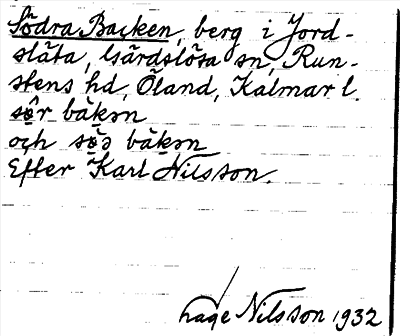 Södra Backen, berg i Jord-
släta, Gärdslösa sn, Run-
stens hd, Öland, Kalmar l.
sø̂r bàkən
och sø̀ə bàkən
Efter Karl Nilsson.
Nilsson 1932